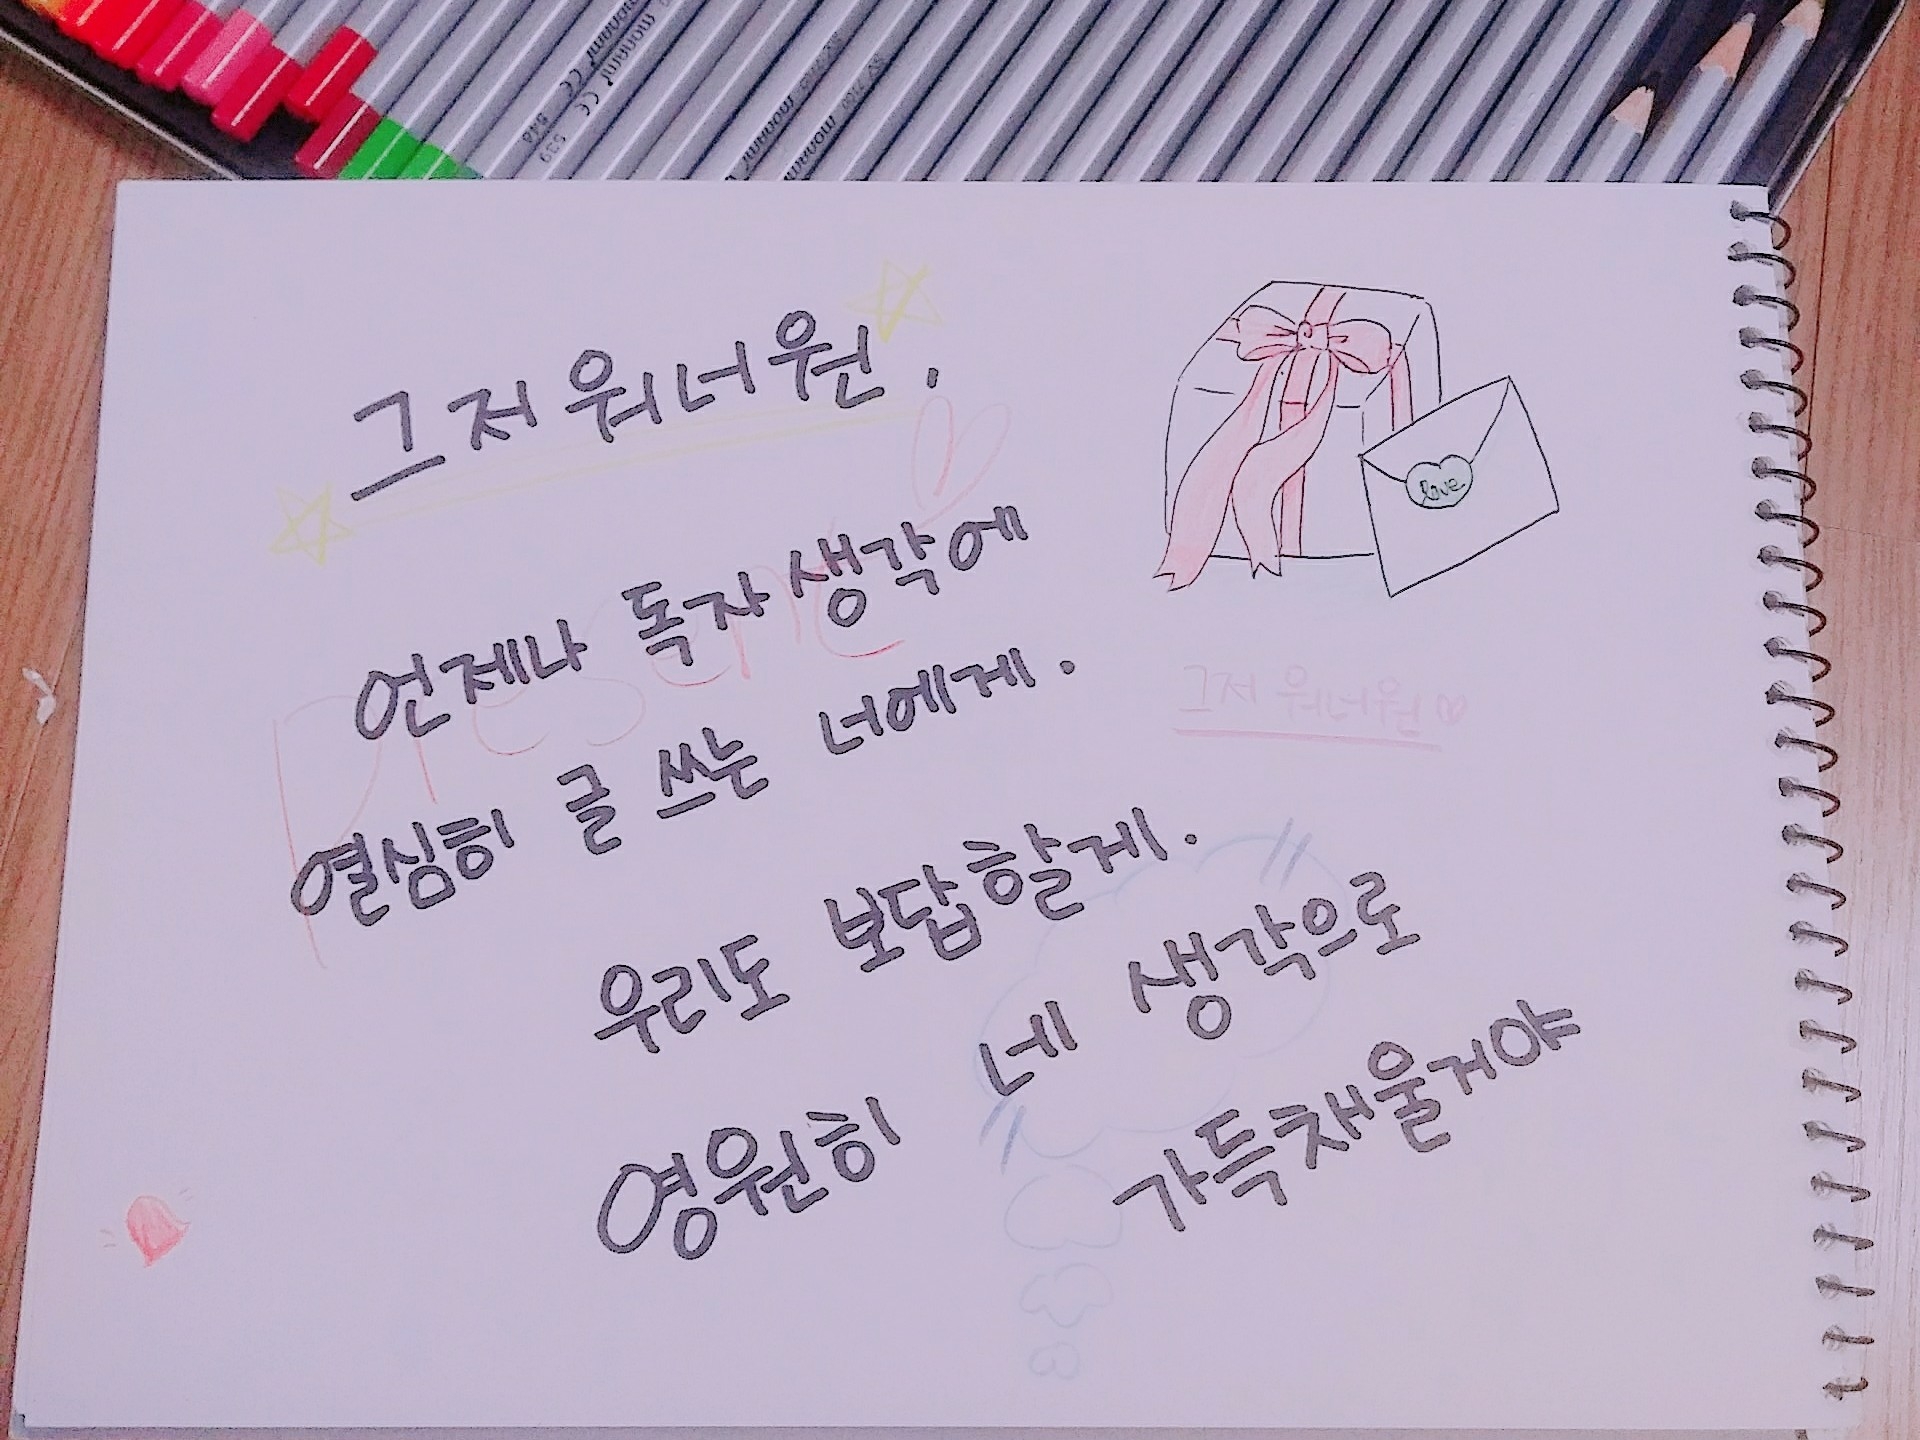 monami 548
monami 539
monami
monami
그저워너원.
love
Present
언제나 독자생각에
열심히 글 쓰는 너에게.
그저 워너원♡
우리도 보답할게.
영원히 네 생각으로
가득채울거야